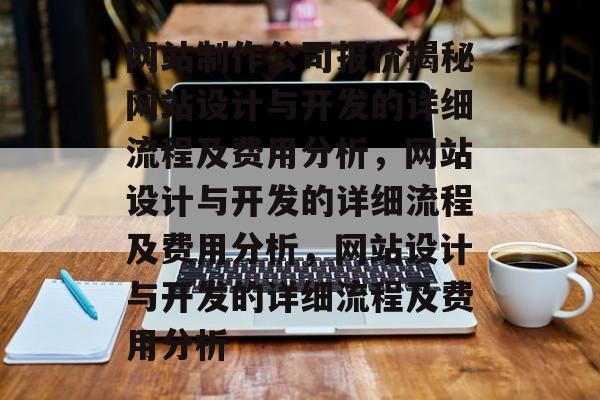 网站制作公司报价揭秘
网站设计与开发的详细
流程及费用分析，网站
设计与开发的详细流程
及费用分析，网站设计
与开发的详细流程及费
用分析